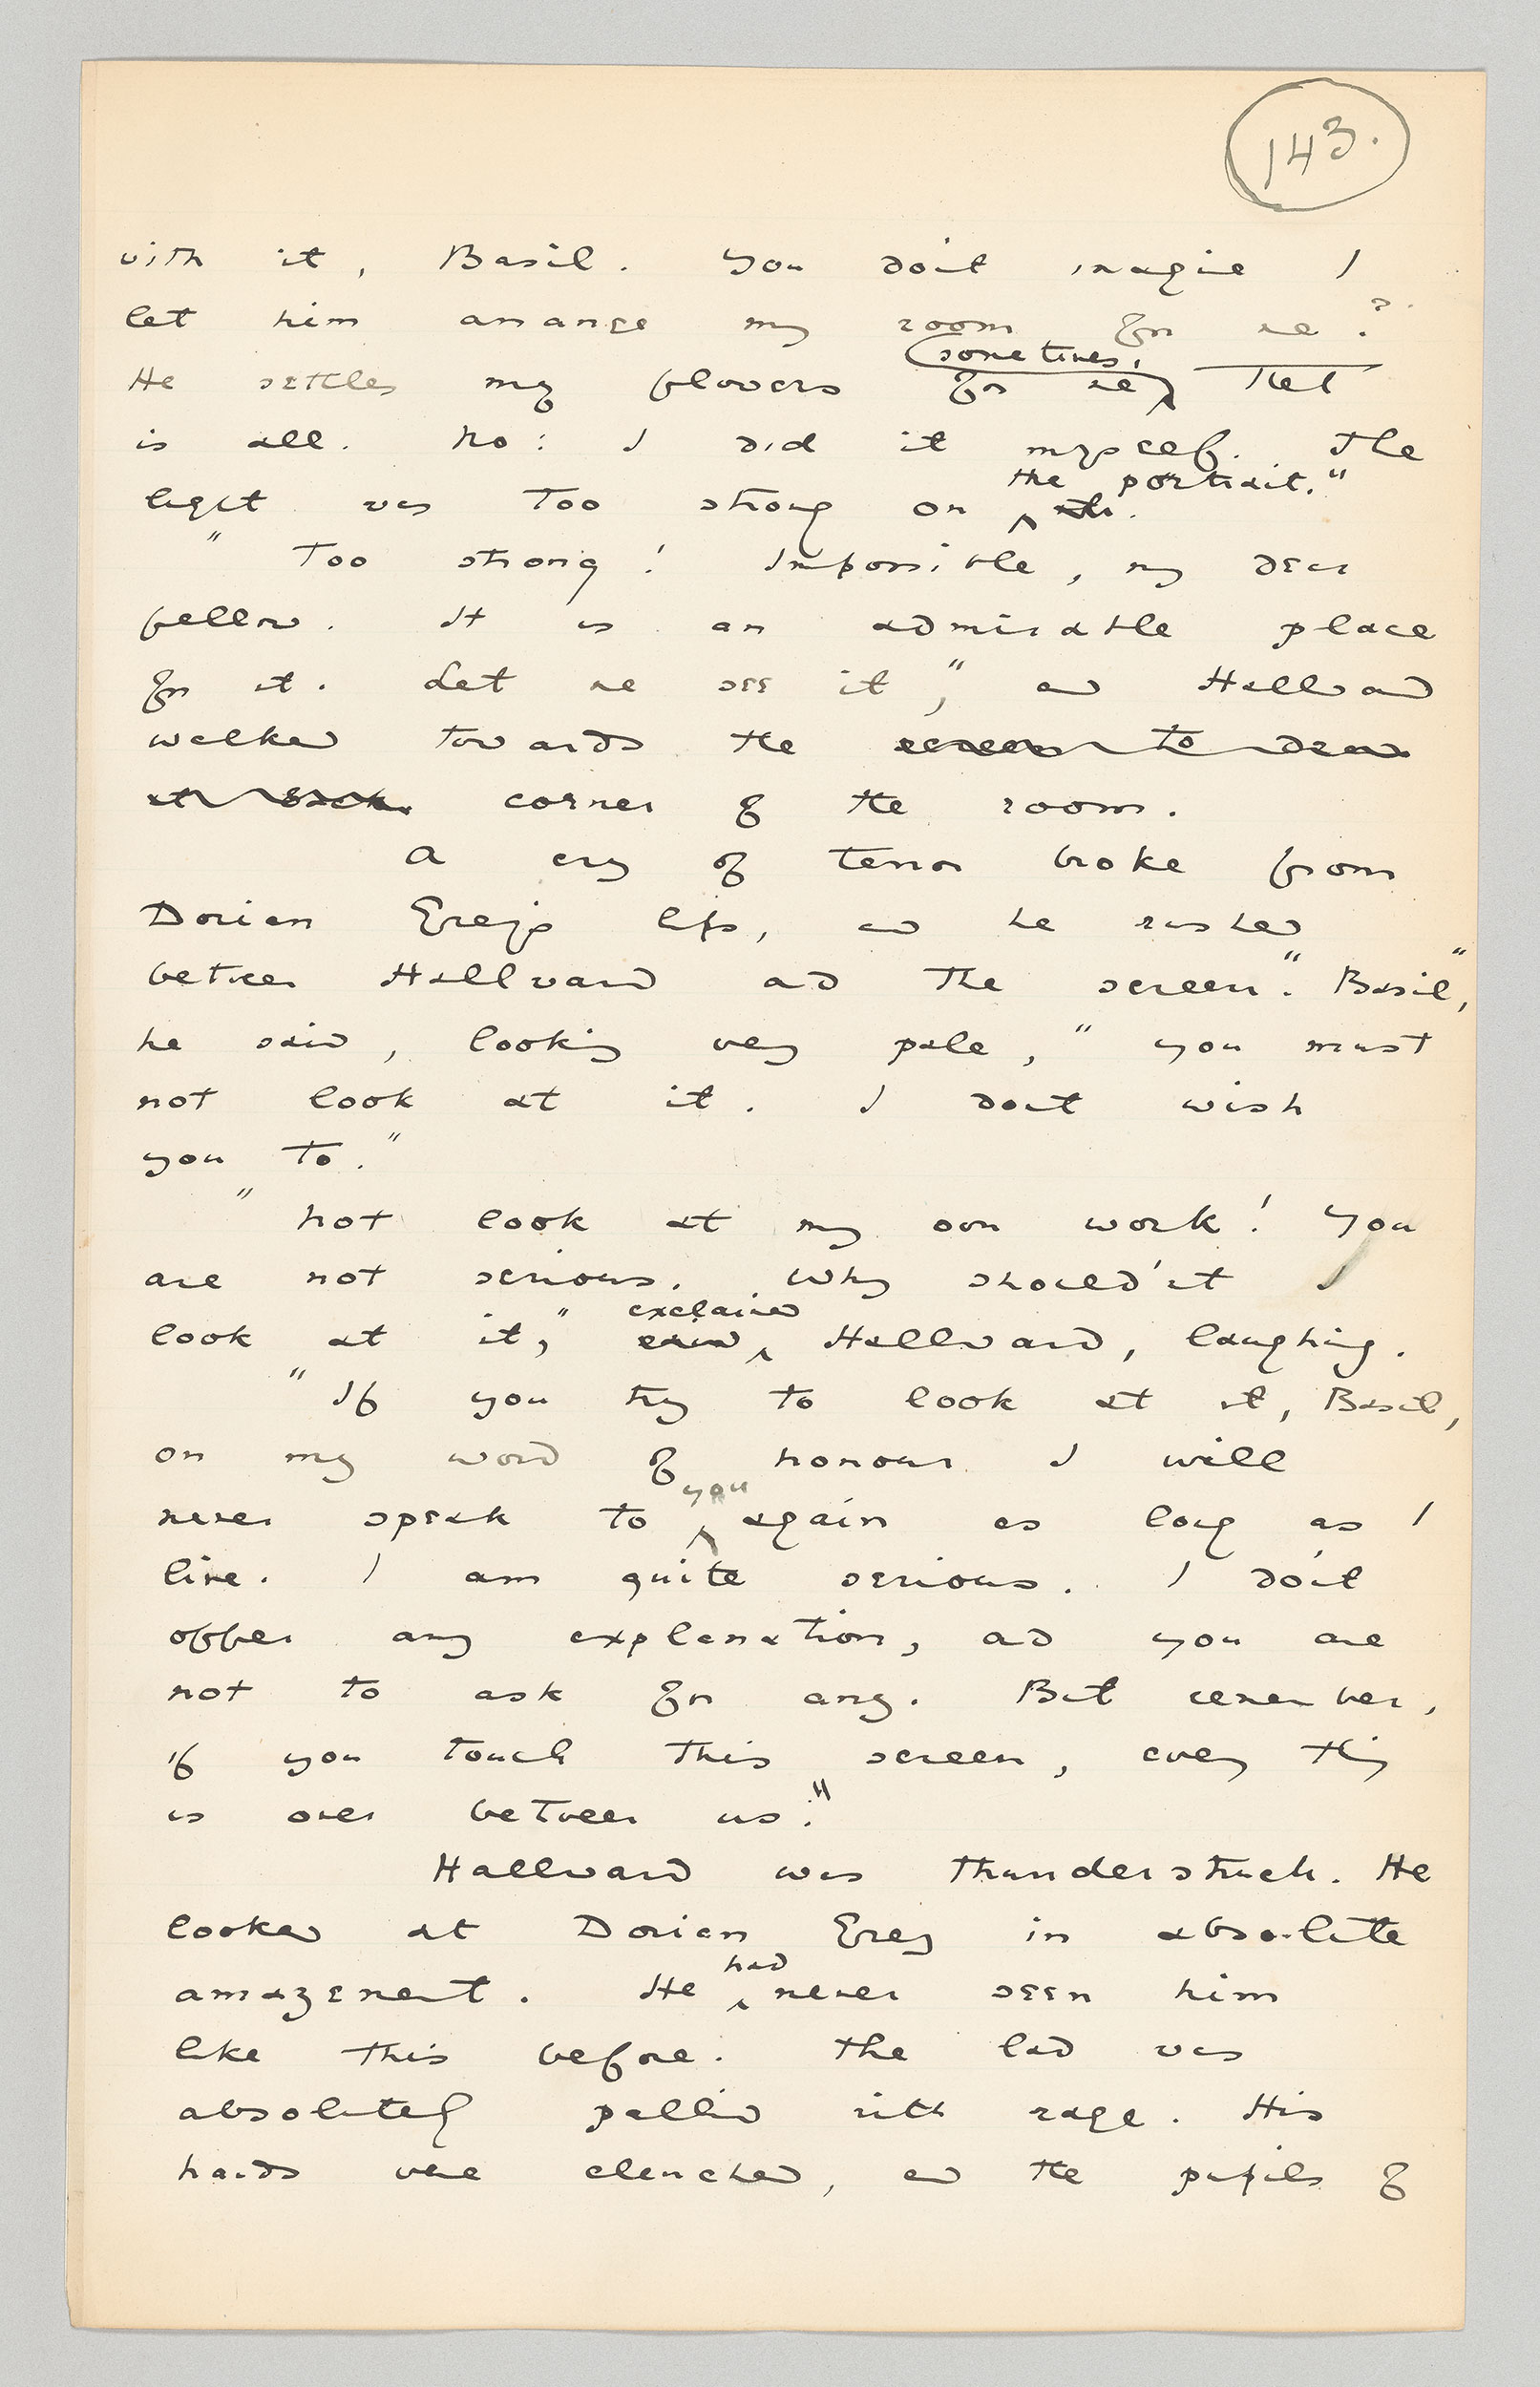 143.
with it, Basil. You don't imagine I
let him arrange my room for me?
sometimes,
He settles my flowers for me that
is all. No: I did it myself. The
the portrait."
light was too strong on
"Too strong! Impossible, my dear
fellow. It is an admirable place
for it. Let me see it," and Hallward
walked towards the screen to draw
it back. corner of the room.
A cry of terror broke from
Dorian Gray's lips, and he rushed
between Hallward and the screen. "Basil,"
he said, looking very pale, "you must
not look at it. I dont wish
you to."
"Not look at my own work! You
are not serious. Why should'nt I
exclaimed
look at it," said Hallward, laughing.
"If you try to look at it, Basil,
on my word of honour I will
you
never speak to again as long as I
live. I am quite serious. I don't
offer any explanation, and you are
not to ask for any. But remember,
if you touch this screen, every thing
is over between us."
Hallward was thunderstruck. He
looked at Dorian Gray in absolute
had
amazement. He never seen him
like this before. The lad was
absolutely pallid with rage. His
hands were clenched, and the pupils of